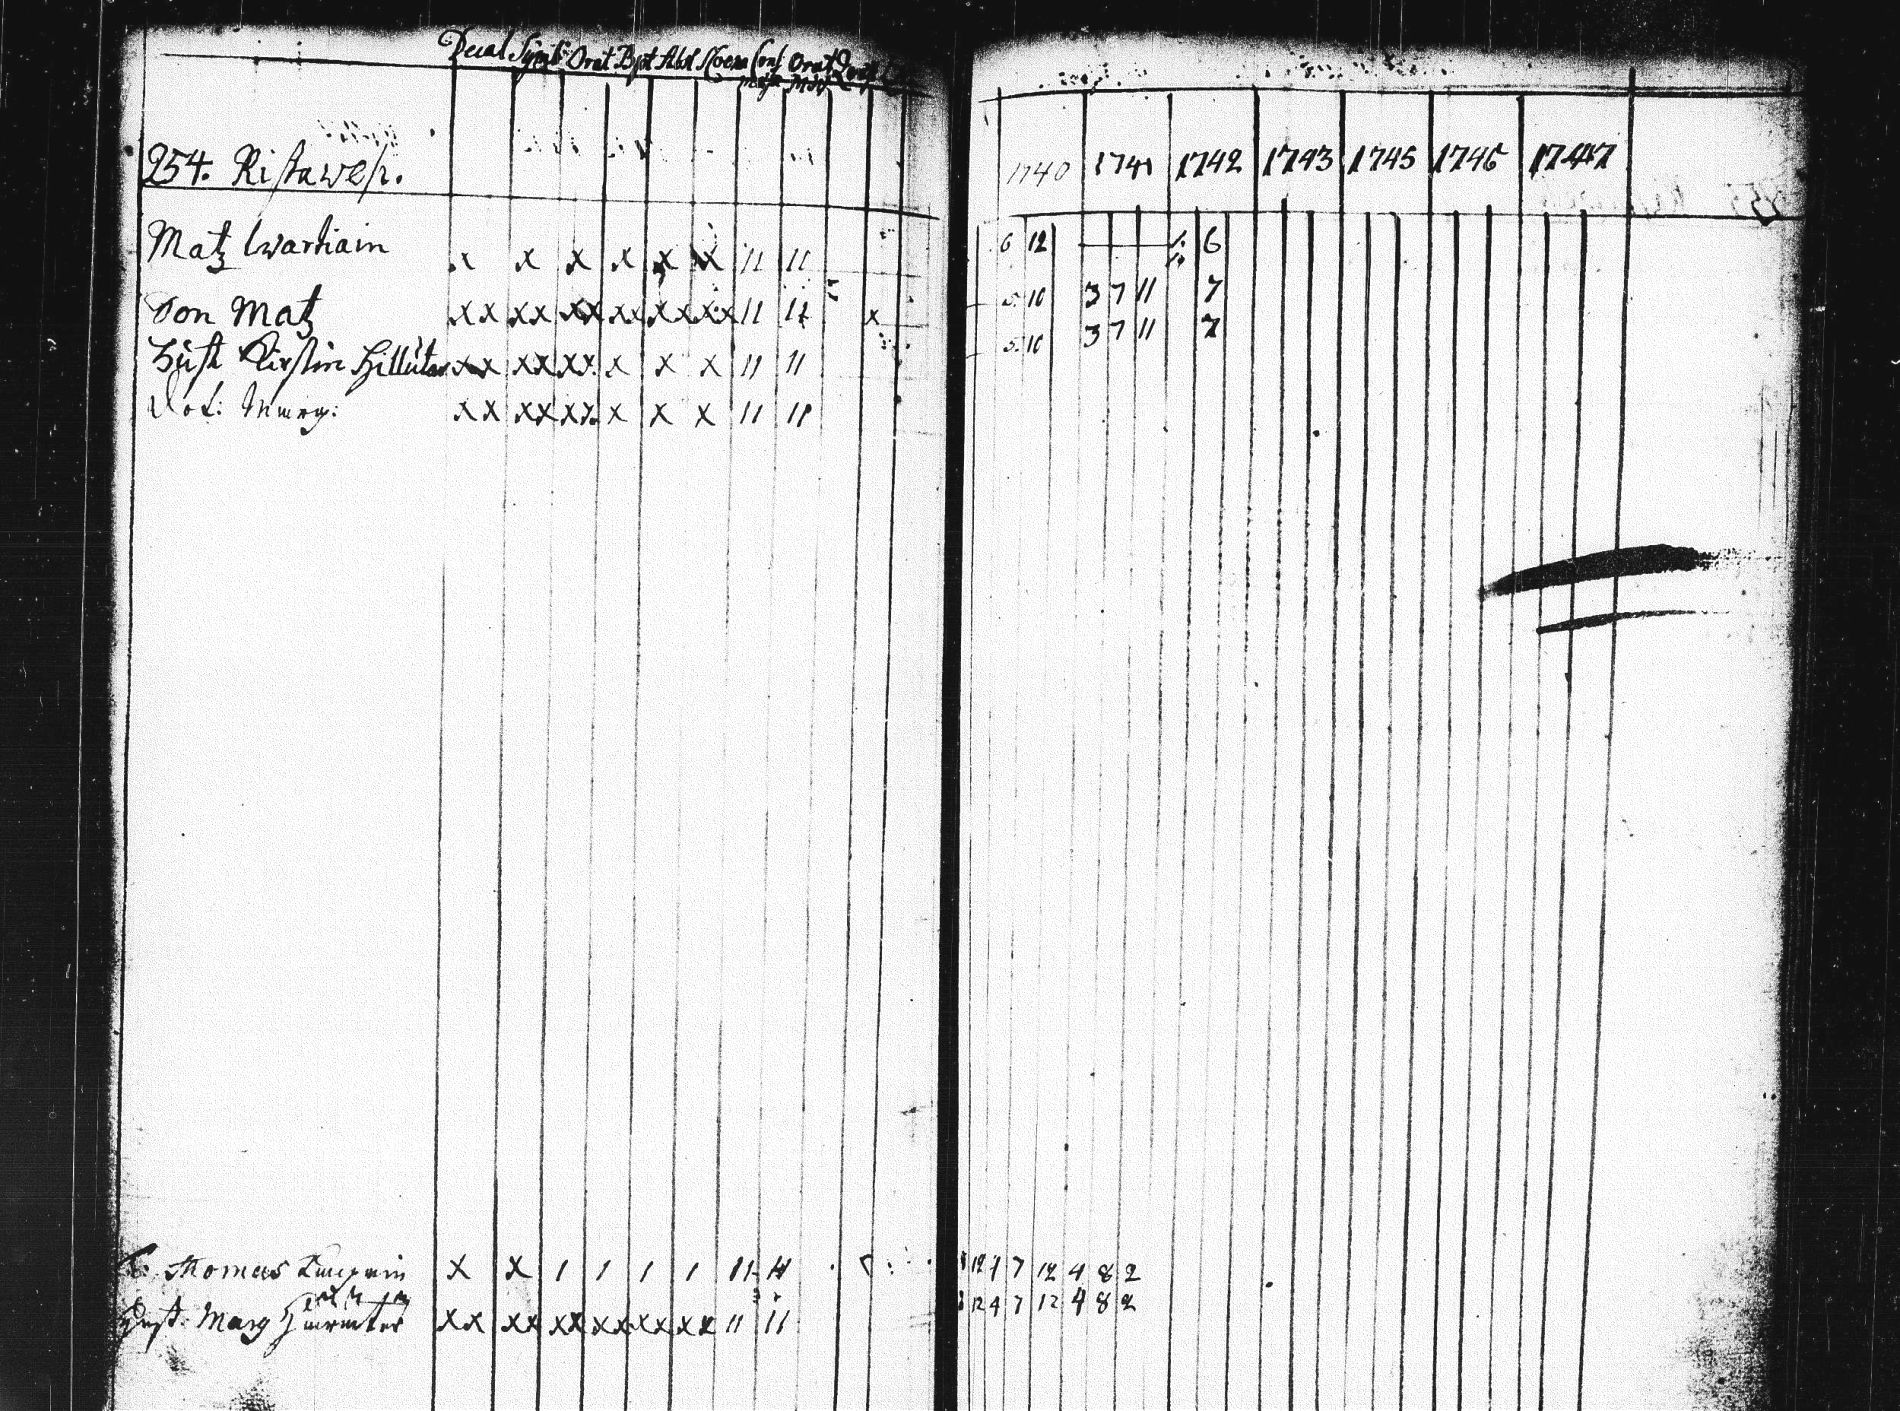 Decal Symb Orat Bpt Abs Coena Conf Orat
254. Ristawesi.
1740 1741 1742 1743 1745 1746 1747
Matz Wartiain x x x x x x 11 11 6 12 6
Son Matz xx xx xx xx xx xx 11 11 x 5 10 3 7 11 7
Hust Kirstin Hillutar xx xx xx x x x 11 11 5 10 3 7 11 7
Dot: Marg: xx xx xx x x x 11 11
Thomas x x 1 1 1 1 11 11 12 4 7 12 4 8 2
Hust: Marg xx xx xx xx xx xx 11 11 12 4 7 12 4 8 2